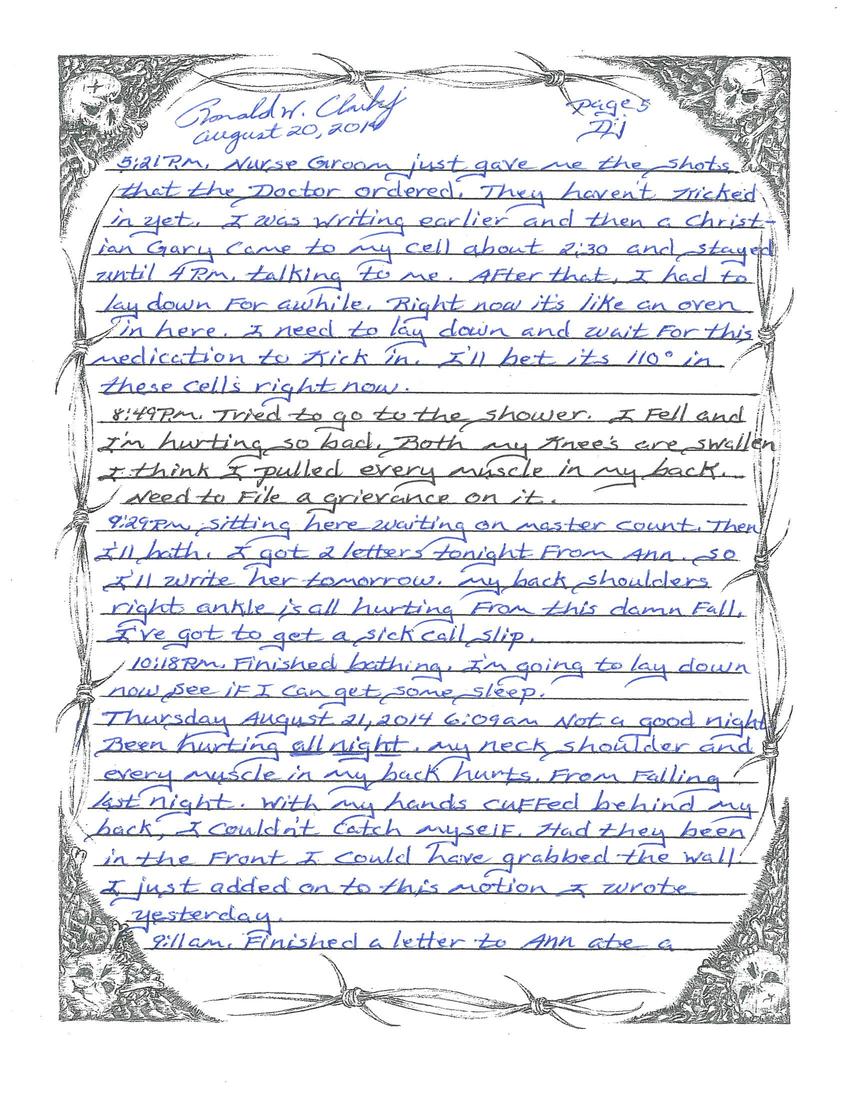 Ronald W. Clark Jr page 5
August 20, 2014 DJ
5:21 P.M. Nurse Groom just gave me the shots
that the Doctor ordered. They haven't Kicked
in yet. I was writing earlier and then a Christ-
ian Gary Came to my cell about 2:30 and stayed
until 4 P.M. talking to me. After that, I had to
lay down For awhile. Right now it's like an oven
in here. I need to lay down and wait For this
medication to Kick in. I'll bet its 110° in
these cells right now.
8:49 P.M. Tried to go to the shower. I Fell and
I'm hurting so bad. Both my Knee's are swallen
I think I pulled every muscle in my back.
Need to File a grievance on it.
9:29 PM sitting here waiting on master count. Then
I'll bath. I got 2 letters tonight From Ann. so
I'll write her tomorrow. my back shoulders
right ankle is all hurting From this damn Fall.
I've got to get a sick call slip.
10:18 P.M. Finished bathing. I'm going to lay down
now see if I can get some sleep.
Thursday August 21, 2014 6:09 am Not a good night
Been hurting all night. my neck shoulder and
every muscle in my back hurts. From Falling
last night. With my hands cuffed behind my
back, I couldn't Catch myself. Had they been
in the Front I could have grabbed the wall.
I just added on to this motion I wrote
yesterday.
9:11 am. Finished a letter to Ann ate a